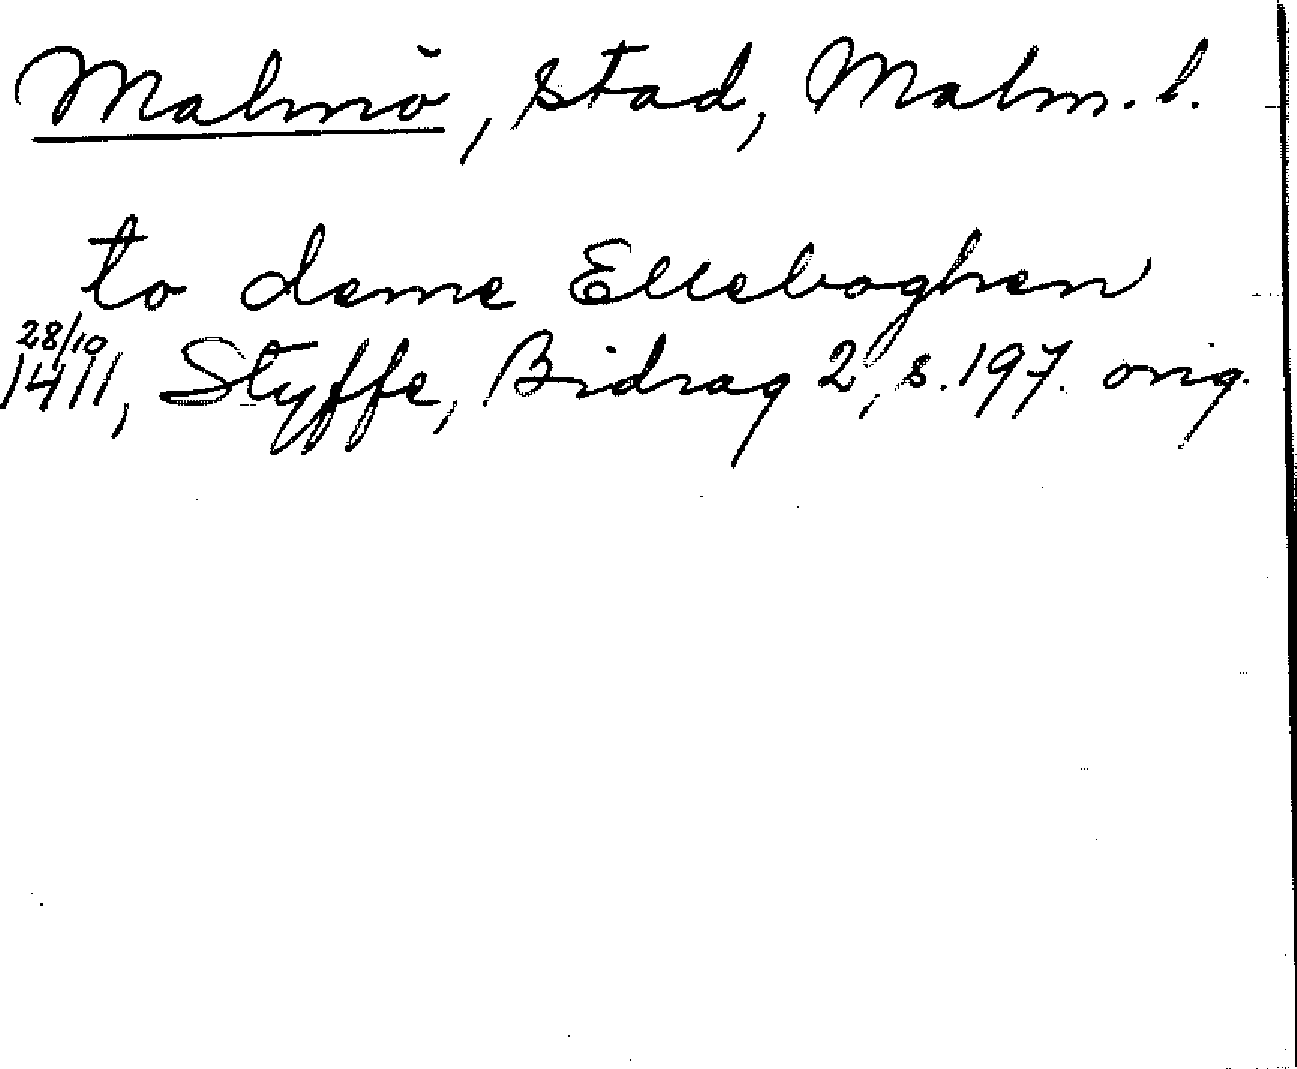 Malmö, stad, Malm. l.
to deme Elleboghen
28/10
1411, Styffe, Bidrag 2, s. 197. orig.